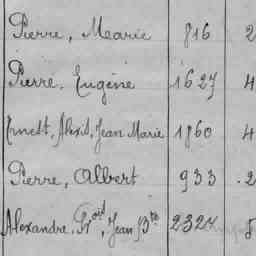 Pierre, Marie 816 2
Pierre, Eugène 1627 4
Ernest, Alexis, Jean Marie 1860 4
Pierre, Albert 933 2
Alexandre, Fçois, Jean Bte 2324